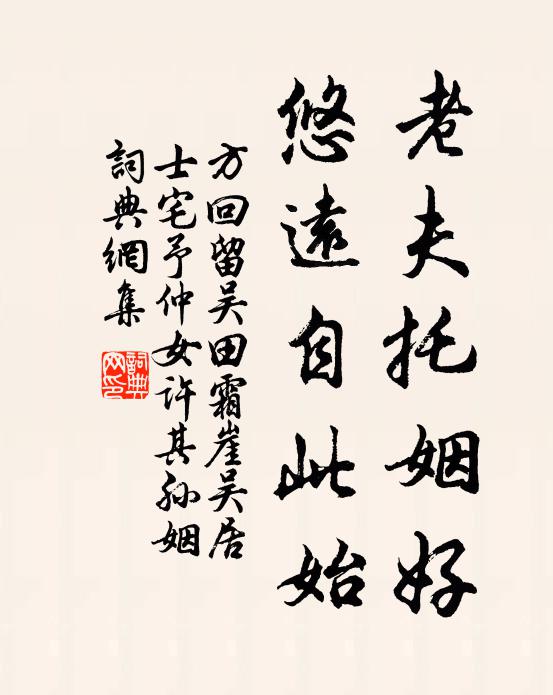 老夫托姻好
悠遠自此始
方回留吴田霜崖吴居
士宅予仲女许其孙姻
詞典網集
詞典網印